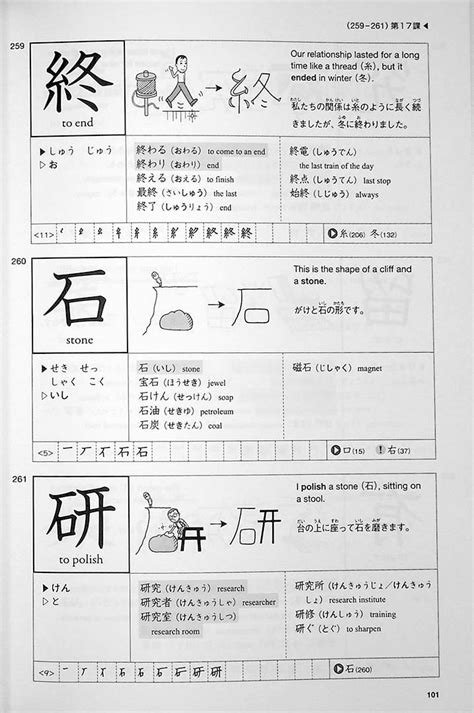 (259–261) 第17課◀
259
終
to end
Our relationship lasted for a long
time like a thread (糸), but it
ended in winter (冬).
私たちの関係は糸のように長く続
きましたが、冬に終わりました。
▶しゅう じゅう
▷お
終わる（おわる）to come to an end
終わり（おわり）end
終える（おえる）to finish
最終（さいしゅう）the last
終了（しゅうりょう）end
終電（しゅうでん）
the last train of the day
終点（しゅうてん）last stop
始終（しじゅう）always
<11>
糸(206) 冬(132)
260
石
stone
This is the shape of a cliff and
a stone.
がけと石の形です。
▶せき せっ
しゃく こく
▷いし
石（いし）stone
宝石（ほうせき）jewel
石けん（せっけん）soap
石油（せきゆ）petroleum
石炭（せきたん）coal
磁石（じしゃく）magnet
<5>
口(15) 右(37)
261
研
to polish
I polish a stone (石), sitting on
a stool.
台の上に座って石を磨きます。
▶けん
▷と
研究（けんきゅう）research
研究者（けんきゅうしゃ）researcher
研究室（けんきゅうしつ）
research room
研究所（けんきゅうじょ／けんきゅう
しょ）research institute
研修（けんしゅう）training
研ぐ（とぐ）to sharpen
<9>
石(260)
101